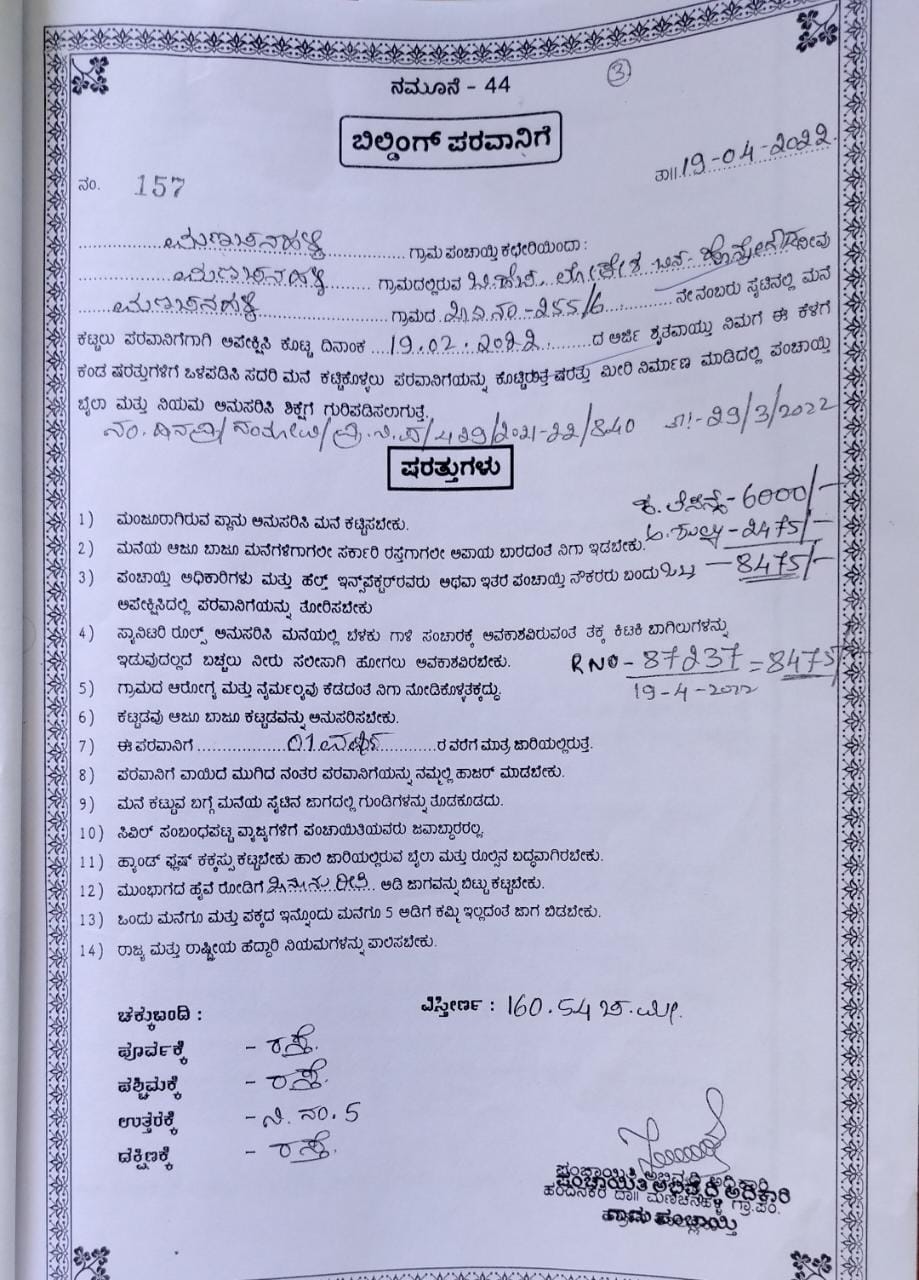 ನಮೂನೆ - 44
3
ಬಿಲ್ಡಿಂಗ್ ಪರವಾನಿಗೆ
ನಂ. 157
ತಾ॥ 19-04-2022
ಗ್ರಾಮ ಪಂಚಾಯ್ತಿ ಕಛೇರಿಯಿಂದಾ :
ಗ್ರಾಮದಲ್ಲಿರುವ
ಗ್ರಾಮದ 255/6 ನೇ ನಂಬರು ಸೈಟಿನಲ್ಲಿ ಮನೆ
ಕಟ್ಟಲು ಪರವಾನಿಗೆಗಾಗಿ ಅಪೇಕ್ಷಿಸಿ ಕೊಟ್ಟ ದಿನಾಂಕ 19.02.2022 ದ ಅರ್ಜಿ ಶೃತವಾಯ್ತು ನಿಮಗೆ ಈ ಕೆಳಗೆ
ಕಂಡ ಷರತ್ತುಗಳಿಗೆ ಒಳಪಡಿಸಿ ಸದರಿ ಮನೆ ಕಟ್ಟಿಕೊಳ್ಳಲು ಪರವಾನಿಗೆಯನ್ನು ಕೊಟ್ಟಿರುತ್ತೆ ಷರತ್ತು ಮೀರಿ ನಿರ್ಮಾಣ ಮಾಡಿದಲ್ಲಿ ಪಂಚಾಯ್ತಿ
ಬೈಲಾ ಮತ್ತು ನಿಯಮ ಅನುಸರಿಸಿ ಶಿಕ್ಷೆಗೆ ಗುರಿಪಡಿಸಲಾಗುತ್ತೆ.
/429/2021-22/840 ತಾ:-29/3/2022
ಷರತ್ತುಗಳು
ಕ. ಲೈಸೆನ್ಸ್ - 6000/-
1) ಮಂಜೂರಾಗಿರುವ ಪ್ಲಾನು ಅನುಸರಿಸಿ ಮನೆ ಕಟ್ಟಿಸಬೇಕು.
ಅ. ಶುಲ್ಕ - 2475/-
2) ಮನೆಯ ಆಜೂ ಬಾಜೂ ಮನೆಗಳಿಗಾಗಲೀ ಸರ್ಕಾರಿ ರಸ್ತೆಗಾಗಲೀ ಅಪಾಯ ಬಾರದಂತೆ ನಿಗಾ ಇಡಬೇಕು.
3) ಪಂಚಾಯ್ತಿ ಅಧಿಕಾರಿಗಳು ಮತ್ತು ಹೆಲ್ತ್ ಇನ್ಸ್‌ಪೆಕ್ಟರ್‌ರವರು ಅಥವಾ ಇತರೆ ಪಂಚಾಯ್ತಿ ನೌಕರರು ಬಂದು ಒಟ್ಟು - 8475/-
ಅಪೇಕ್ಷಿಸಿದಲ್ಲಿ ಪರವಾನಿಗೆಯನ್ನು ತೋರಿಸಬೇಕು
4) ಸ್ಯಾನಿಟರಿ ರೂಲ್ಸ್ ಅನುಸರಿಸಿ ಮನೆಯಲ್ಲಿ ಬೆಳಕು ಗಾಳಿ ಸಂಚಾರಕ್ಕೆ ಅವಕಾಶವಿರುವಂತೆ ತಕ್ಕ ಕಿಟಕಿ ಬಾಗಿಲುಗಳನ್ನು
ಇಡುವುದಲ್ಲದೆ ಬಚ್ಚಲು ನೀರು ಸಲೀಸಾಗಿ ಹೋಗಲು ಅವಕಾಶವಿರಬೇಕು.
R NO - 87237 = 8475/
5) ಗ್ರಾಮದ ಆರೋಗ್ಯ ಮತ್ತು ನೈರ್ಮಲ್ಯವು ಕೆಡದಂತೆ ನಿಗಾ ನೋಡಿಕೊಳ್ಳತಕ್ಕದ್ದು.
19-4-2022
6) ಕಟ್ಟಡವು ಆಜೂ ಬಾಜೂ ಕಟ್ಟಡವನ್ನು ಅನುಸರಿಸಬೇಕು.
7) ಈ ಪರವಾನಿಗೆ 01 ವರ್ಷದ ರ ವರೆಗೆ ಮಾತ್ರ ಜಾರಿಯಲ್ಲಿರುತ್ತೆ.
8) ಪರವಾನಿಗೆ ವಾಯಿದೆ ಮುಗಿದ ನಂತರ ಪರವಾನಿಗೆಯನ್ನು ನಮ್ಮಲ್ಲಿ ಹಾಜರ್ ಮಾಡಬೇಕು.
9) ಮನೆ ಕಟ್ಟುವ ಬಗ್ಗೆ ಮನೆಯ ಸೈಟಿನ ಜಾಗದಲ್ಲಿ ಗುಂಡಿಗಳನ್ನು ತೊಡಕೂಡದು.
10) ಸಿವಿಲ್ ಸಂಬಂಧಪಟ್ಟ ವ್ಯಾಜ್ಯಗಳಿಗೆ ಪಂಚಾಯಿತಿಯವರು ಜವಾಬ್ದಾರರಲ್ಲ.
11) ಹ್ಯಾಂಡ್ ಫ್ಲಷ್ ಕಕ್ಕಸ್ಸು ಕಟ್ಟಬೇಕು ಹಾಲಿ ಜಾರಿಯಲ್ಲಿರುವ ಬೈಲಾ ಮತ್ತು ರೂಲ್ಸಿನ ಬದ್ಧವಾಗಿರಬೇಕು.
12) ಮುಂಭಾಗದ ಹೈವೆ ರೋಡಿಗೆ ನಿಯಮ ರೀತಿ ಅಡಿ ಜಾಗವನ್ನು ಬಿಟ್ಟು ಕಟ್ಟಬೇಕು.
13) ಒಂದು ಮನೆಗೂ ಮತ್ತು ಪಕ್ಕದ ಇನ್ನೊಂದು ಮನೆಗೂ 5 ಅಡಿಗೆ ಕಮ್ಮಿ ಇಲ್ಲದಂತೆ ಜಾಗ ಬಿಡಬೇಕು.
14) ರಾಜ್ಯ ಮತ್ತು ರಾಷ್ಟ್ರೀಯ ಹೆದ್ದಾರಿ ನಿಯಮಗಳನ್ನು ಪಾಲಿಸಬೇಕು.
ಚಕ್ಕುಬಂದಿ :
ವಿಸ್ತೀರ್ಣ : 160.54 ಚ.ಮೀ.
ಪೂರ್ವಕ್ಕೆ - ರಸ್ತೆ.
ಪಶ್ಚಿಮಕ್ಕೆ - ರಸ್ತೆ.
ಉತ್ತರಕ್ಕೆ - ನಿ. ನಂ. 5
ದಕ್ಷಿಣಕ್ಕೆ - ರಸ್ತೆ.
ಪಂಚಾಯಿತಿ ಅಭಿವೃದ್ಧಿ ಅಧಿಕಾರಿ
ಗ್ರಾಮ ಪಂಚಾಯ್ತಿ